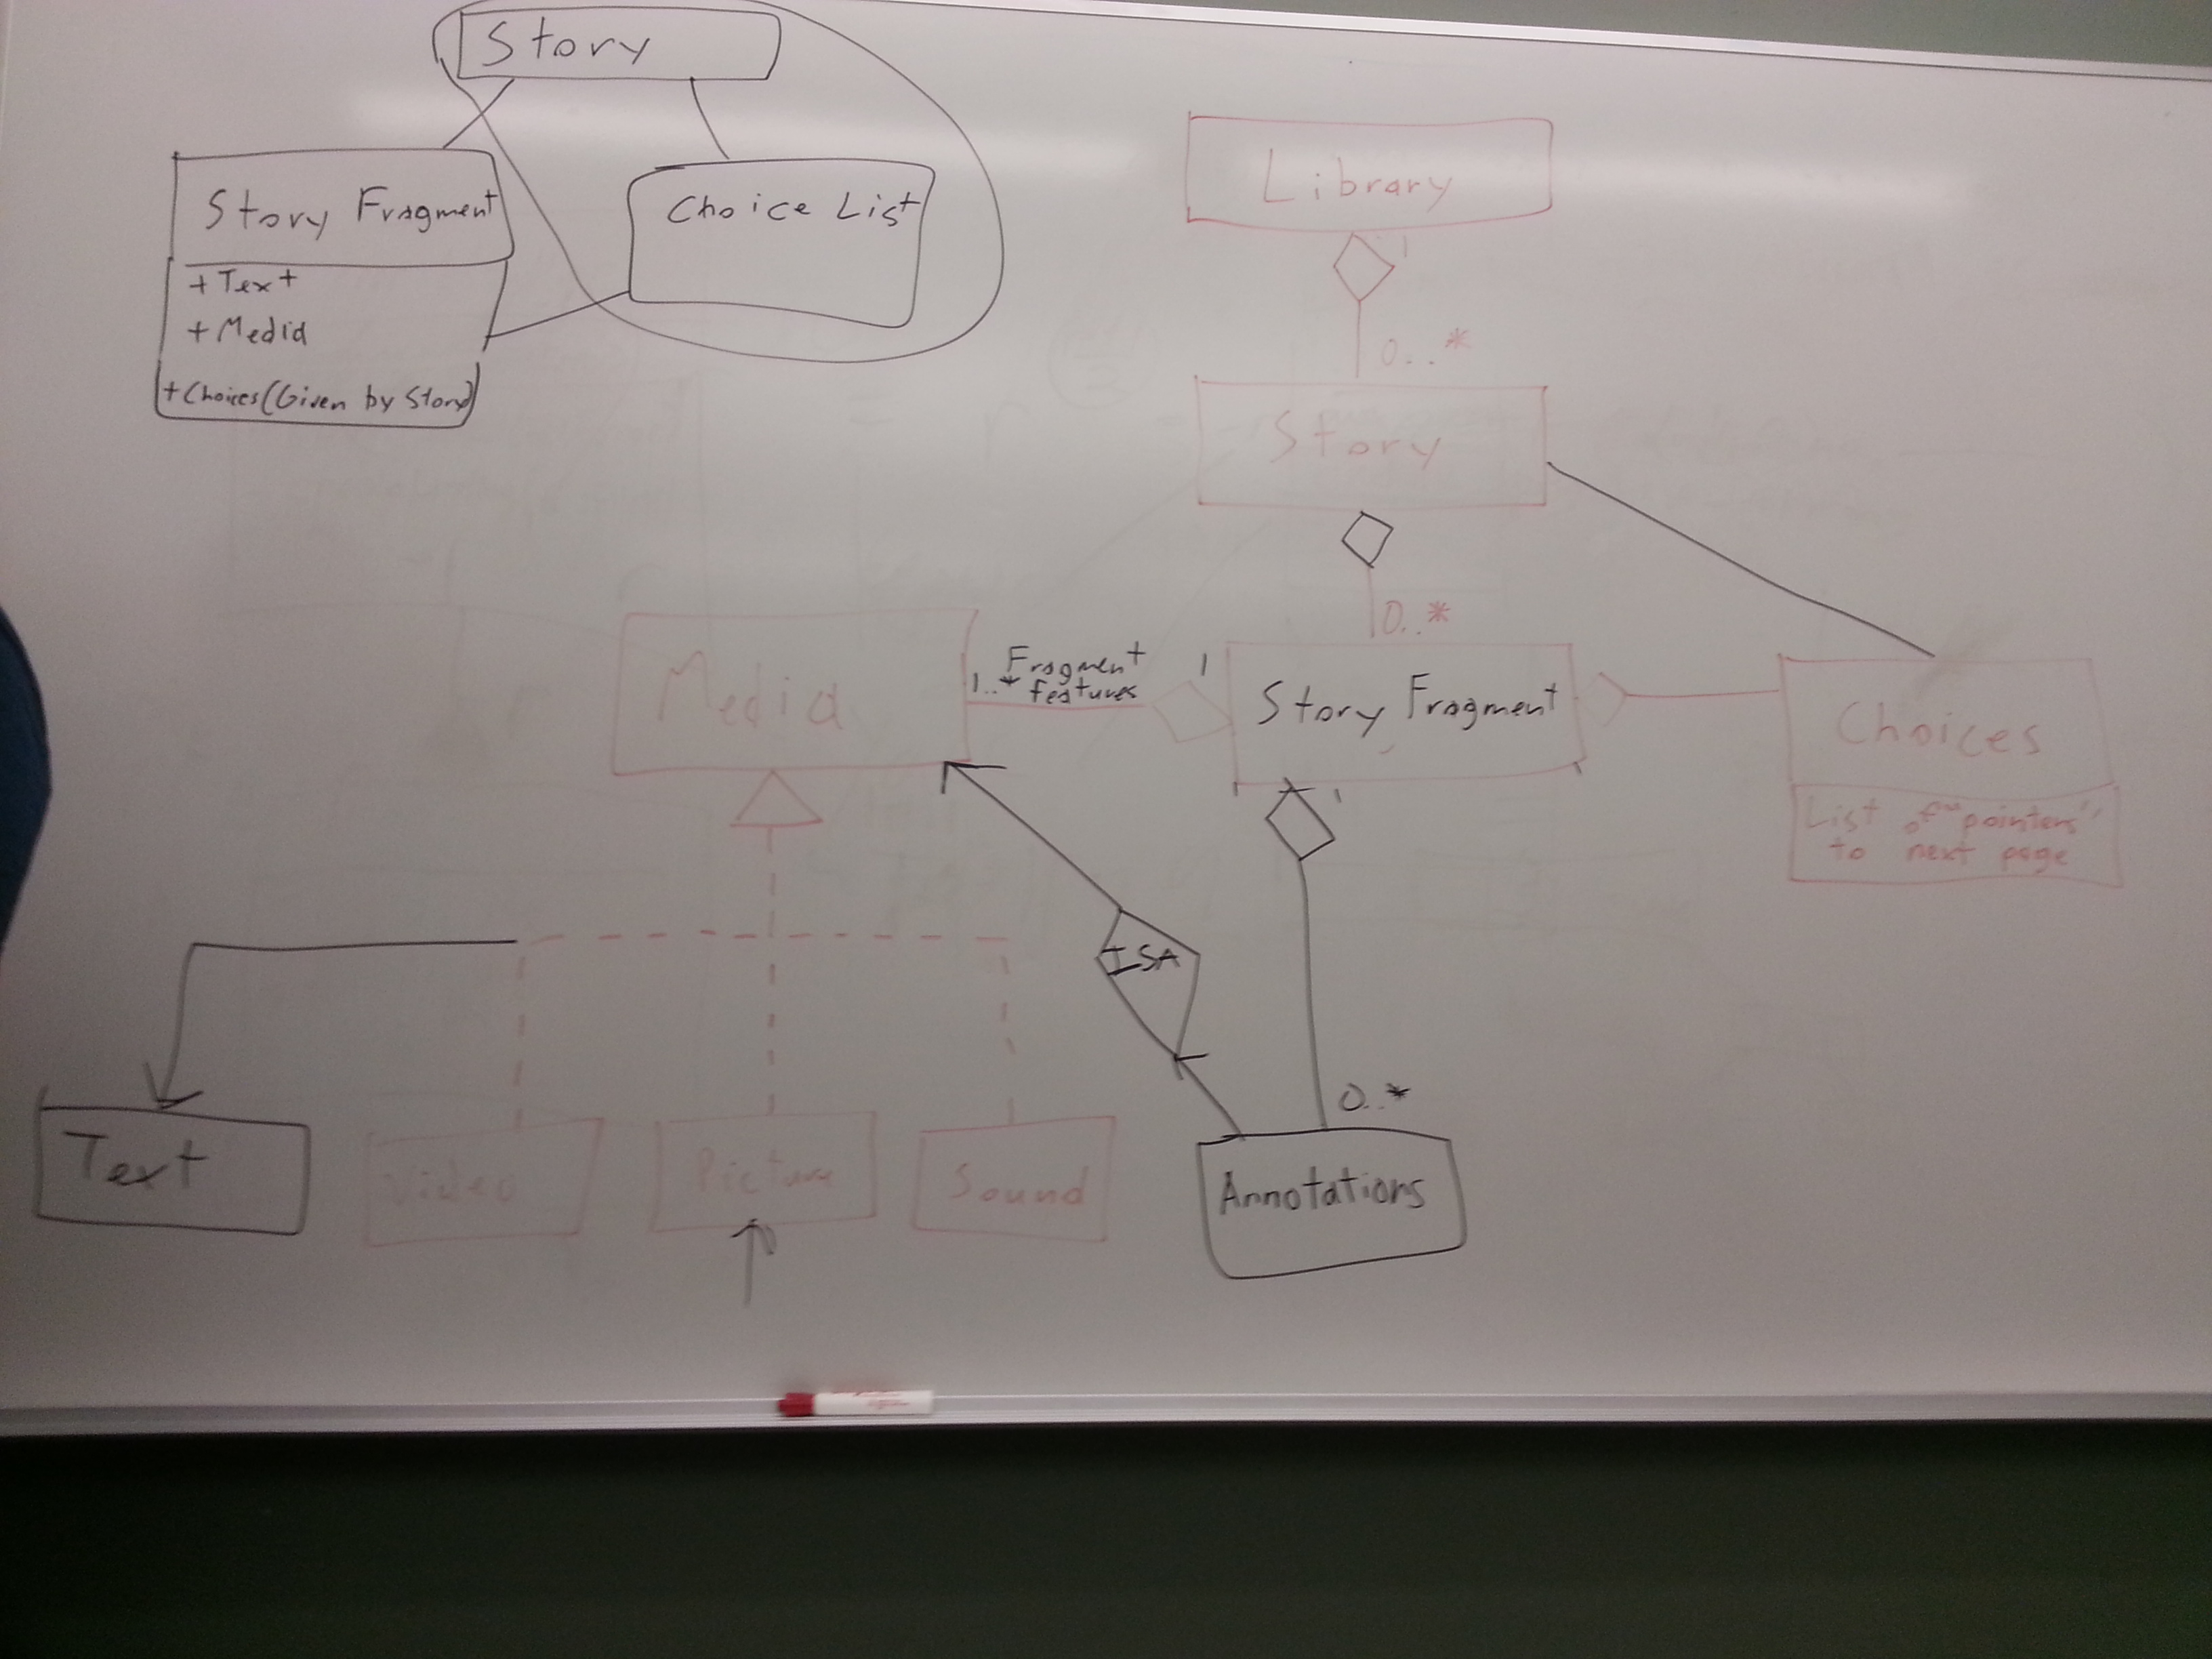 Story
Story Fragment
+ Text
+ Media
+ Choices (Given by Story)
Choice List
Library
1
0..*
Story
0..*
Media
1..*
Fragment
features
1
Story Fragment
1
Choices
List of "pointers"
to next page
ISA
0..*
Text
Video
Picture
Sound
Annotations